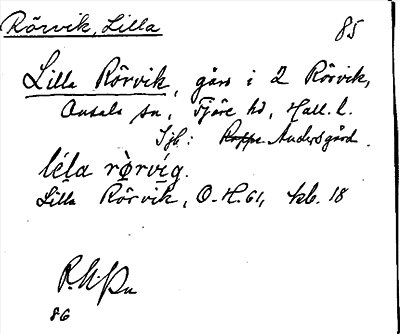 Rörvik, Lilla
85
Lilla Rörvik, gård i 2 Rörvik,
Onsala sn, Fjäre hd, Hall. l.
Andersgård.
léla rör̀víg.
Lilla Rörvik, O-H. 61, kb. 18
86